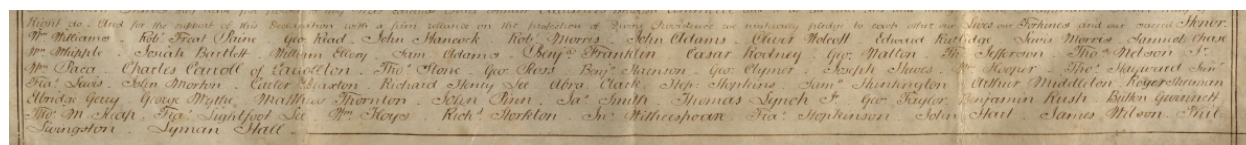 Right do. And for the support of this Declaration with a firm reliance on the protection of Divine Providence we mutually pledge to each other our Lives our Fortunes and our sacred Honor.
Wm Williams. Robt Treat Paine. Geo. Read. John Hancock. Robt Morris. John Adams. Oliver Wolcott. Edward Rutledge. Lewis Morris. Samuel Chase
Wm Whipple. Josiah Bartlett. William Ellery. Sam Adams. Benja. Franklin. Caesar Rodney. Geo. Walton. Th. Jefferson. Thos. Nelson Jr.
Wm Paca. Charles Carroll of Carrollton. Thos. Stone. Geo. Ross. Benj. Harrison. Geo. Clymer. Joseph Hewes. Wm Hooper. Thos. Hayward Junr.
Fras. Lewis. John Morton. Carter Braxton. Richard Henry Lee. Abra. Clark. Step. Hopkins. Saml Huntington. Arthur Middleton. Roger Sherman
Elbridge Gerry. George Wythe. Matthew Thornton. John Penn. Jas. Smith. Thomas Lynch Jr. Geo. Taylor. Benjamin Rush. Button Gwinnett
Tho. M. Kean. Fras. Lightfoot Lee. Wm Floyd. Richd. Stockton. Jno. Witherspoon. Fras. Hopkinson. John Hart. James Wilson. Phil.
Livingston. Lyman Hall.